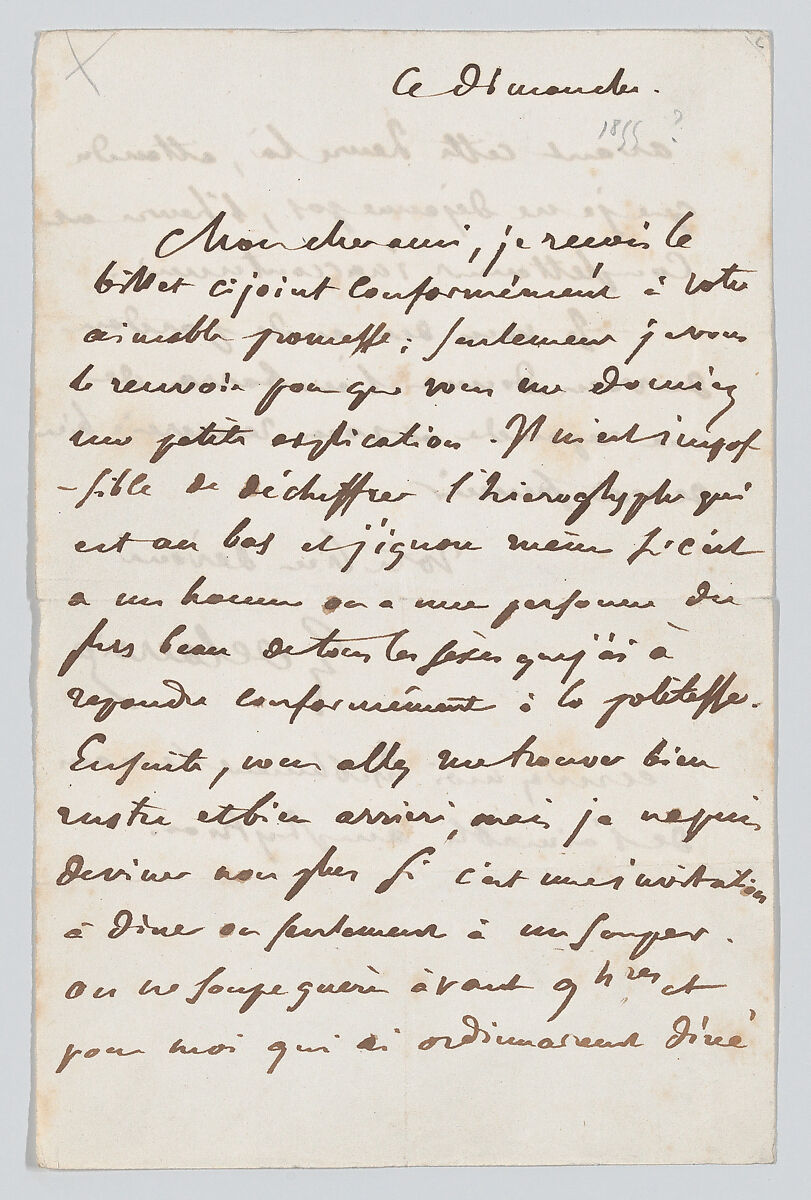 Ce Dimanche.
1855 ?
Mon cher ami, je recois le
billet ci joint conformément à votre
aimable promesse; seulement je vous
le renvoie pour que vous me donniez
une petite explication. Il m'est impos
-sible de déchiffrer l'hieroglyphe qui
est au bas et j'ignore même si c'est
a un homme ou a une personne du
plus beau de tous les sexes que j'ai à
repondre conformément à la politesse.
Ensuite, vous allez me trouver bien
rustre et bien arriéré, mais je ne puis
deviner non plus si c'est une invitation
à diner ou seulement à un souper.
On ne soupe guère avant 9 hres et
pour moi qui ai ordinairement diné